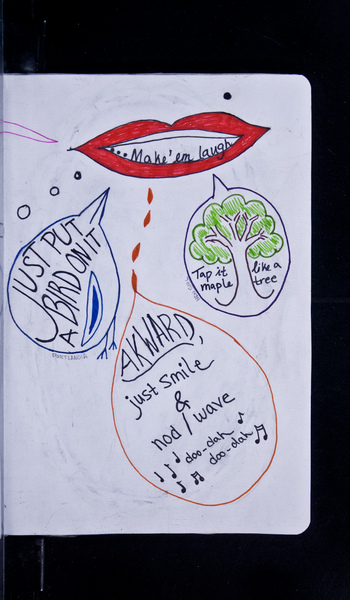 ...Make'em laugh
JUST PUT
A BIRD ON IT
Tap it like a
maple tree
AKWARD,
just smile
&
nod / wave
doo-dah
doo-dah